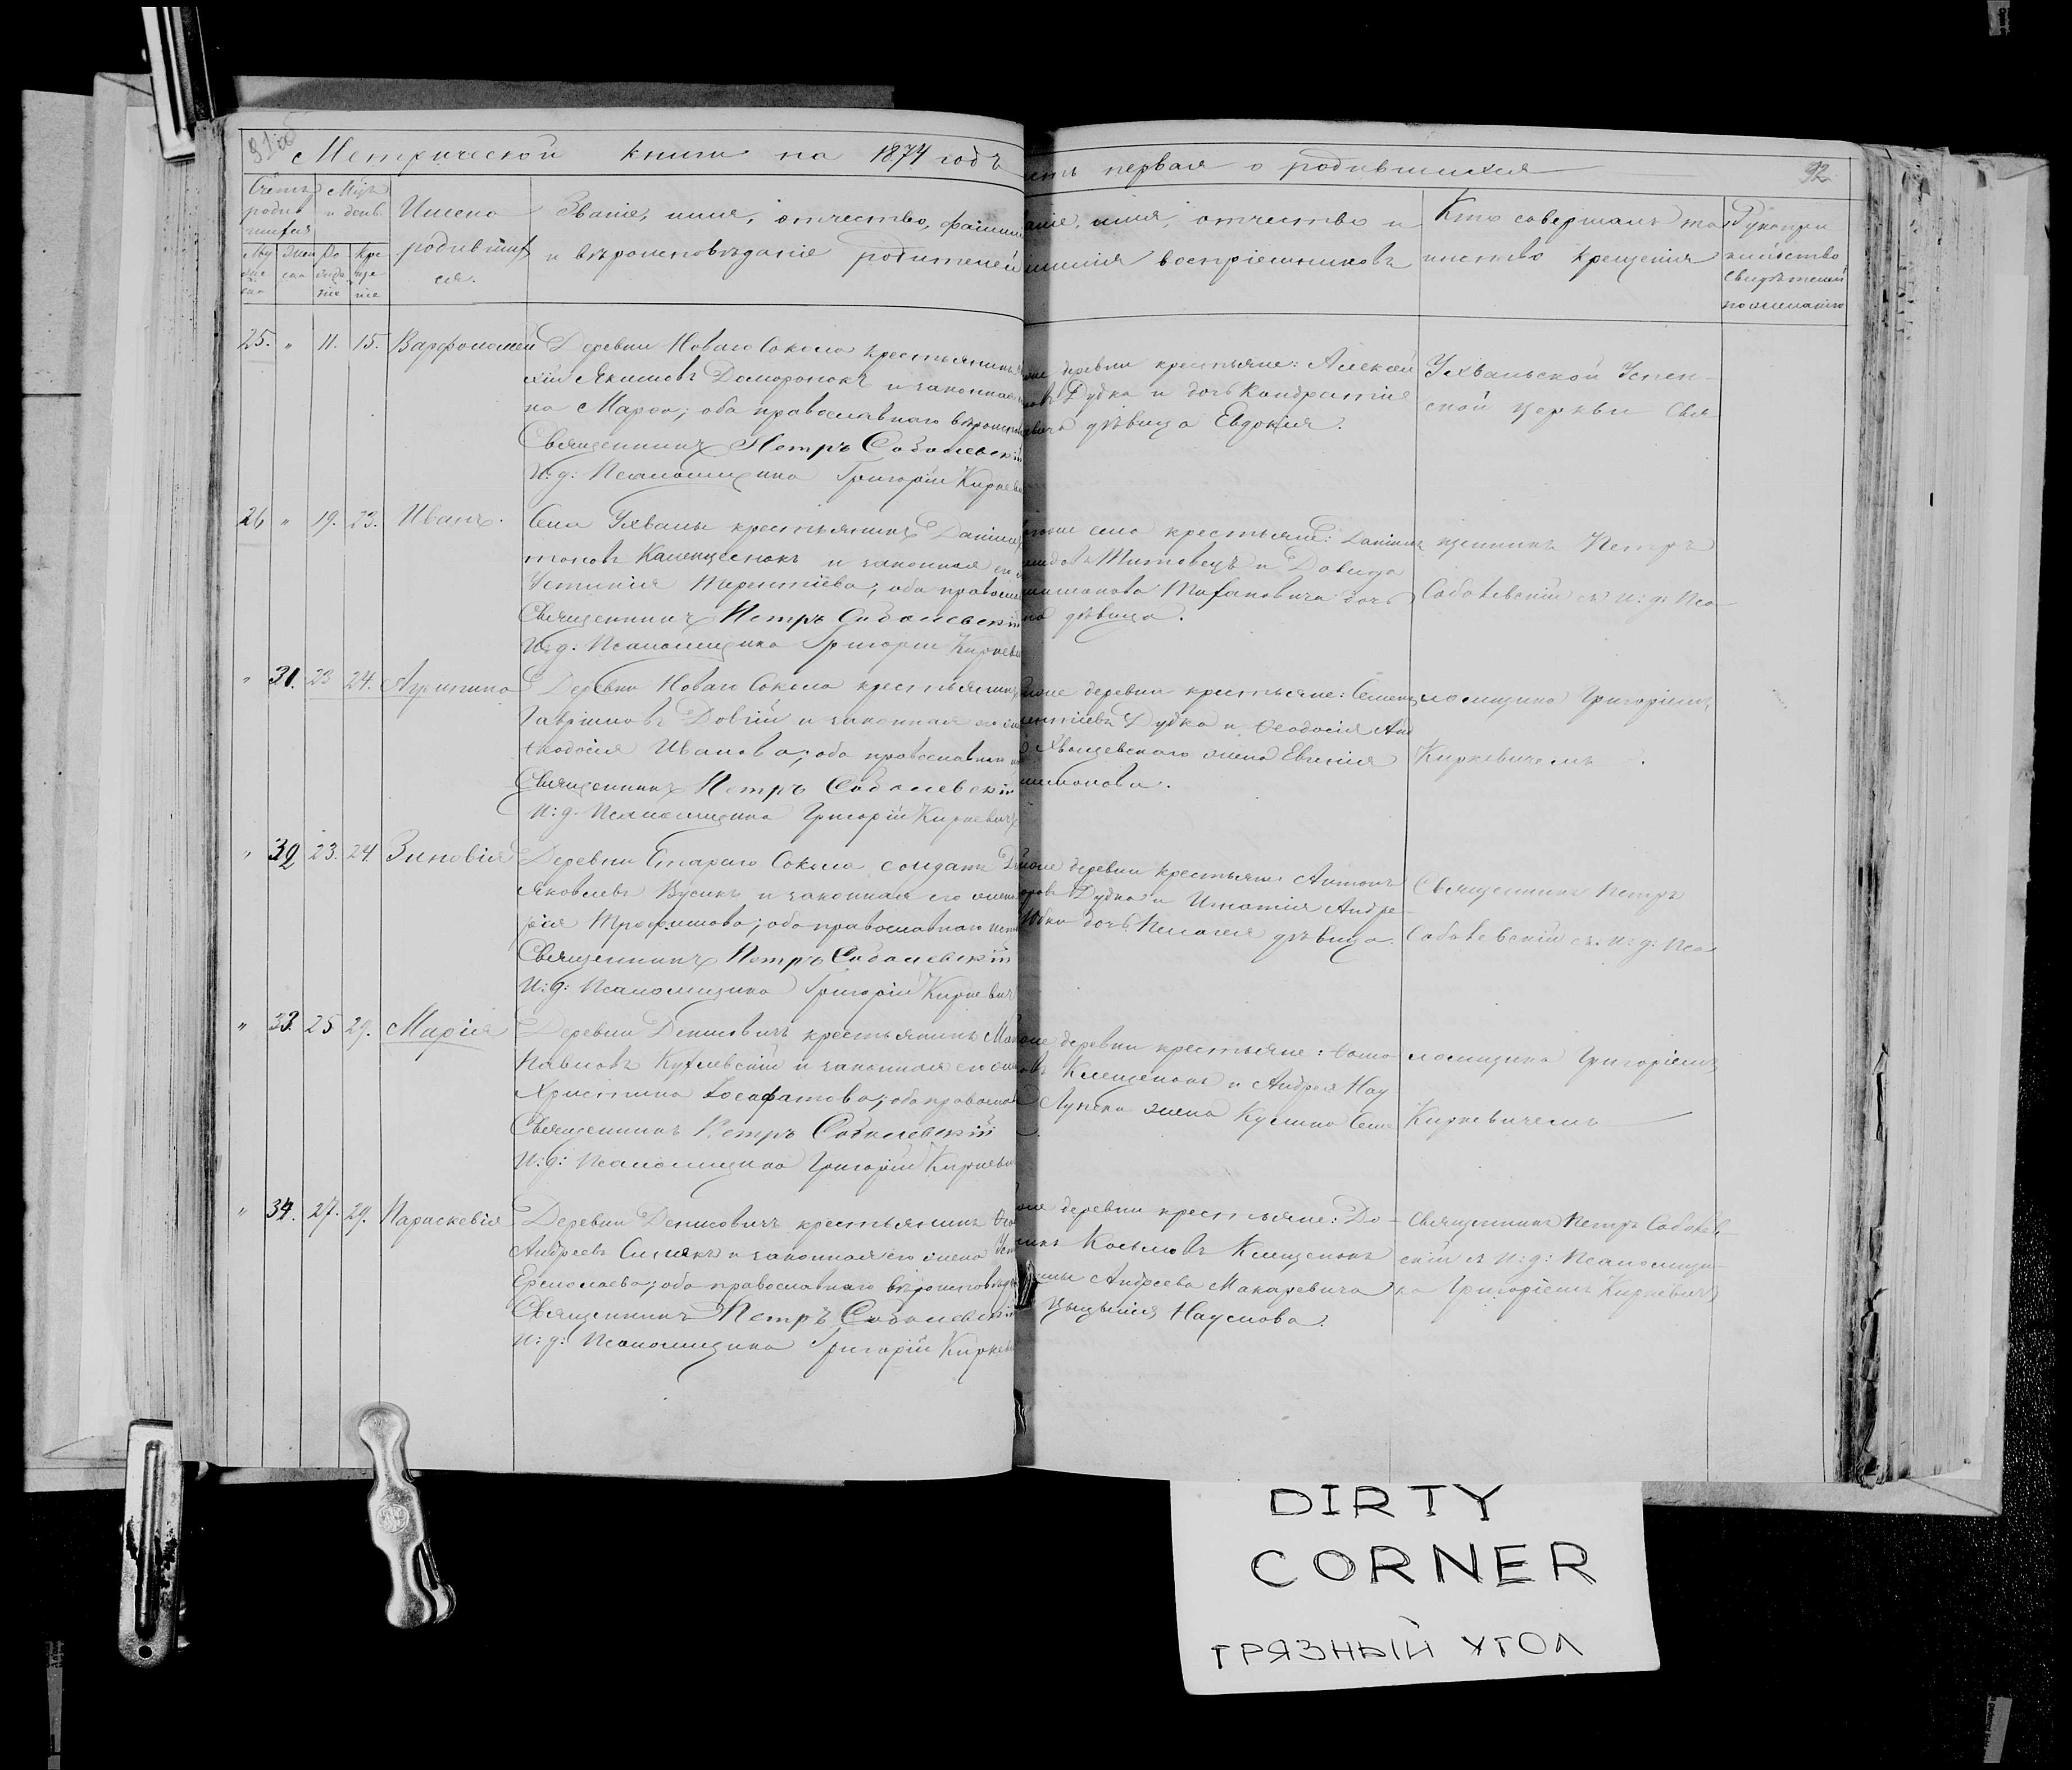 91 об
Метрической книги на 1874 годъ
сть первая о родившихся
92
Счетъ родив шихся
Мцъ и день
Имена родивших ся.
Званіе, имя, отчество, фамил
и вѣроисповѣданіе родителей
аніе, имя, отчество и
милія воспріемниковъ
Кто совершалъ та
инство крещенія
Рукопри
кладство
свидѣтелей
по желанію
Му же ска
Жен ска
Ро жде ніе
Кре ще ніе
25. " 11. 15. Варфоломей
Деревни Новаго Сокола крестьянинъ
сій Якимовъ Доморонокъ и законная
на Марѳа; оба православнаго вѣроиспо
Священникъ Петръ Соболевскій
И: д: Псаломщика Григорій Киркеви
деревни крестьяне: Алексей
Дудка и дочь Кондратія
дѣвица Евдокія.
Ухвальской Успен-
ской церкви Свя-
26 " 19. 23. Иванъ.
Села Ухвалы крестьянинъ Даніилъ
тоновъ Каменщенокъ и законная его
Устинія Терентіева; оба правосла
Священникъ Петръ Соболевскій
И: д: Псаломщика Григорій Киркеви
села крестьяне: Даніилъ
Титовецъ и Давида
дочь
дѣвица.
щенникъ Петръ
Соболевскій съ и: д: Пса-
" 31. 23 24. Агрипина
Деревни Новаго Сокола крестьянинъ
Гавріиловъ Довгій и законная его
Ѳеодосія Иванова; оба православнаго
Священникъ Петръ Соболевскій
И: д: Псаломщика Григорій Киркевичъ
деревни крестьяне: Семенъ
Дудка и Ѳеодосія Анд
Хвощевскаго жена Евгенія
ломщика Григоріемъ
Киркевичемъ
" 32 23. 24 Зиновія
Деревни Стараго Сокола солдатъ
Яковлевъ Бусикъ и законная его жена
рія Трофимова; оба православнаго испо
Священникъ Петръ Соболевскій
И: д: Псаломщика Григорій Киркевичъ
деревни крестьяне: Антонъ
Дудка и Игнатія Андре-
дочь Пелагея дѣвица.
Священникъ Петръ
Соболевскій съ и: д: Пса
" 33. 25 29. Марія
Деревни Денисовичъ крестьянинъ
Павловъ Кутлевскій и законная его
Христина Іосафатова; оба правосла
Священникъ Петръ Соболевскій
И: д: Псаломщика Григорій Киркеви
деревни крестьяне: Ѳома
Клещенокъ и Андрея Нау
жена Кулина Семе
ломщика Григоріемъ
Киркевичемъ
" 34. 27. 29. Параскевія
Деревни Денисовичъ крестьянинъ
Андреевъ Сизякъ и законная его жена
Ермолаева; оба православнаго вѣроисповѣд
Священникъ Петръ Соболевскій
И: д: Псаломщика Григорій Киркеви
деревни крестьяне: До-
Козьмовъ Клещенокъ
Андреева Макаревича
Наумова.
Священникъ Петръ Соболев-
скій съ И: д: Псаломщи-
ка Григоріемъ Киркевичемъ
DIRTY
CORNER
ГРЯЗНЫЙ УГОЛ